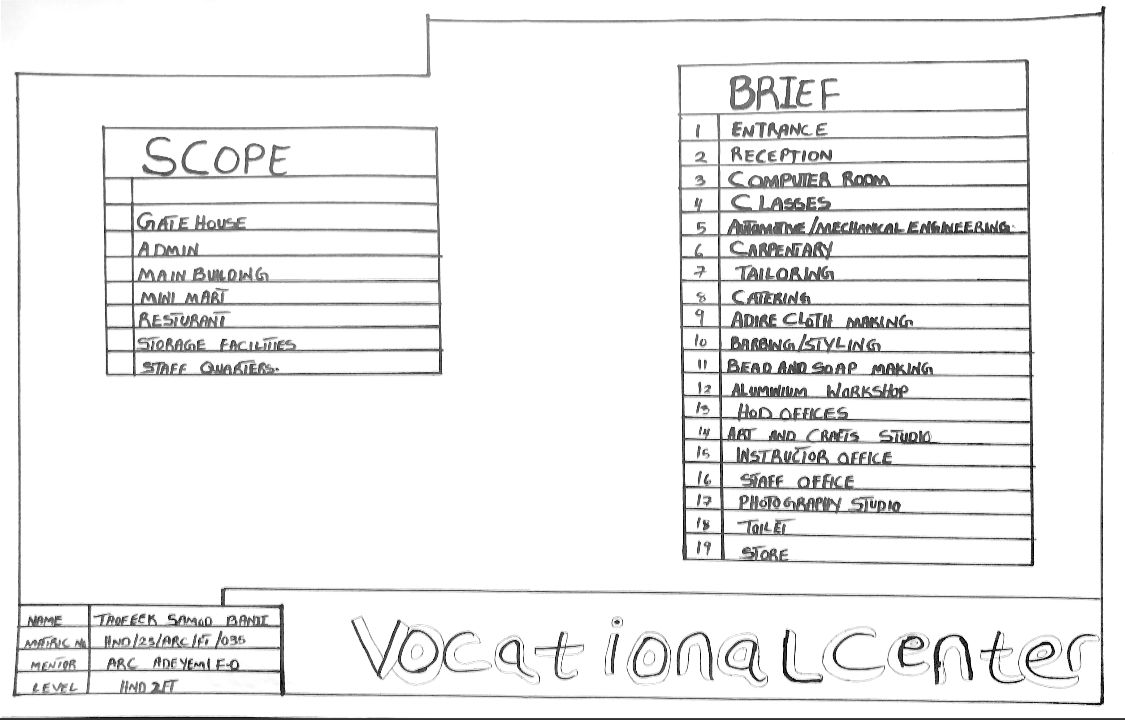 SCOPE
GATE HOUSE
ADMIN
MAIN BUILDING
MINI MART
RESTURANT
STORAGE FACILITIES
STAFF QUARTERS.
BRIEF
1 ENTRANCE
2 RECEPTION
3 COMPUTER ROOM
4 CLASSES
5 AUTOMOTIVE/MECHANICAL ENGINEERING.
6 CARPENTARY
7 TAILORING
8 CATERING
9 ADIRE CLOTH MAKING
10 BARBING/STYLING
11 BEAD AND SOAP MAKING
12 ALUMINIUM WORKSHOP
13 HOD OFFICES
14 ART AND CRAFTS STUDIO
15 INSTRUCTOR OFFICE
16 STAFF OFFICE
17 PHOTOGRAPHY STUDIO
18 TOILET
19 STORE
NAME TAOFEEK SAMAD BANJI
MATRIC No HND/23/ARC/FT/035
MENTOR ARC ADEYEMI F.O
LEVEL HND 2FT
VocationaL Center